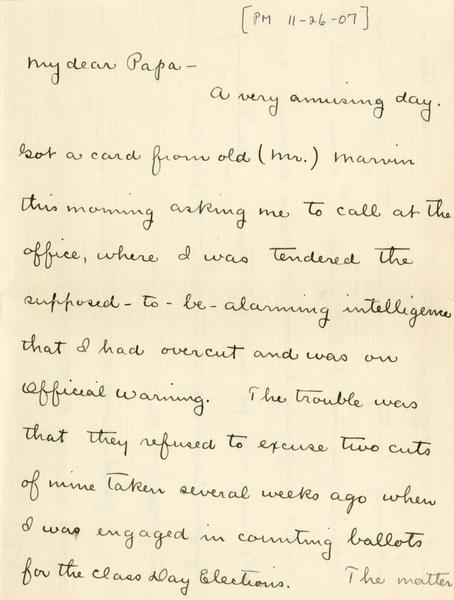 [PM 11-26-07]
My dear Papa —
A very amusing day.
Got a card from old (Mr.) Marvin
this morning asking me to call at the
office, where I was tendered the
supposed-to-be-alarming intelligence
that I had overcut and was on
Official Warning. The trouble was
that they refused to excuse two cuts
of mine taken several weeks ago when
I was engaged in counting ballots
for the Class Day Elections. The matter